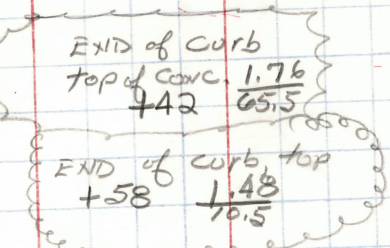 END of curb
top of conc. 1.76
+42 65.5
END of curb, top
+58 1.48
70.5